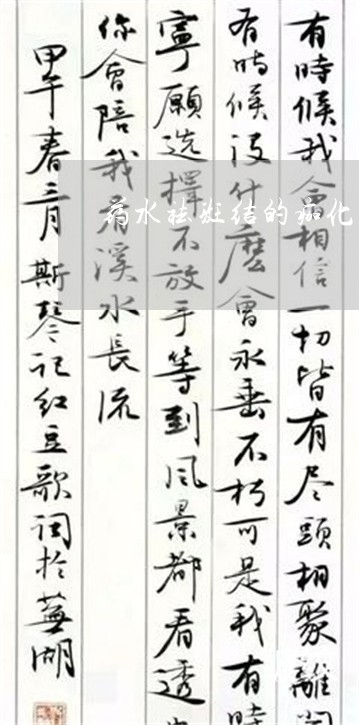 有時候我會相信一切皆有尽頭相聚離
有時候沒什麼會永垂不朽可是我有時
寧願选擇不放手等到风景都看透
你會陪我看溪水長流
甲午春三月斯琴记红豆歌词於蕪湖
药水祛斑结的痂化